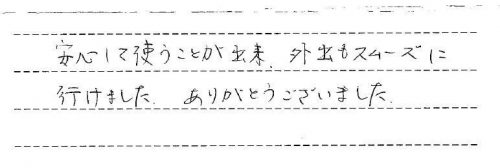 安心して使うことが出来、外出もスムーズに
行けました。ありがとうございました。